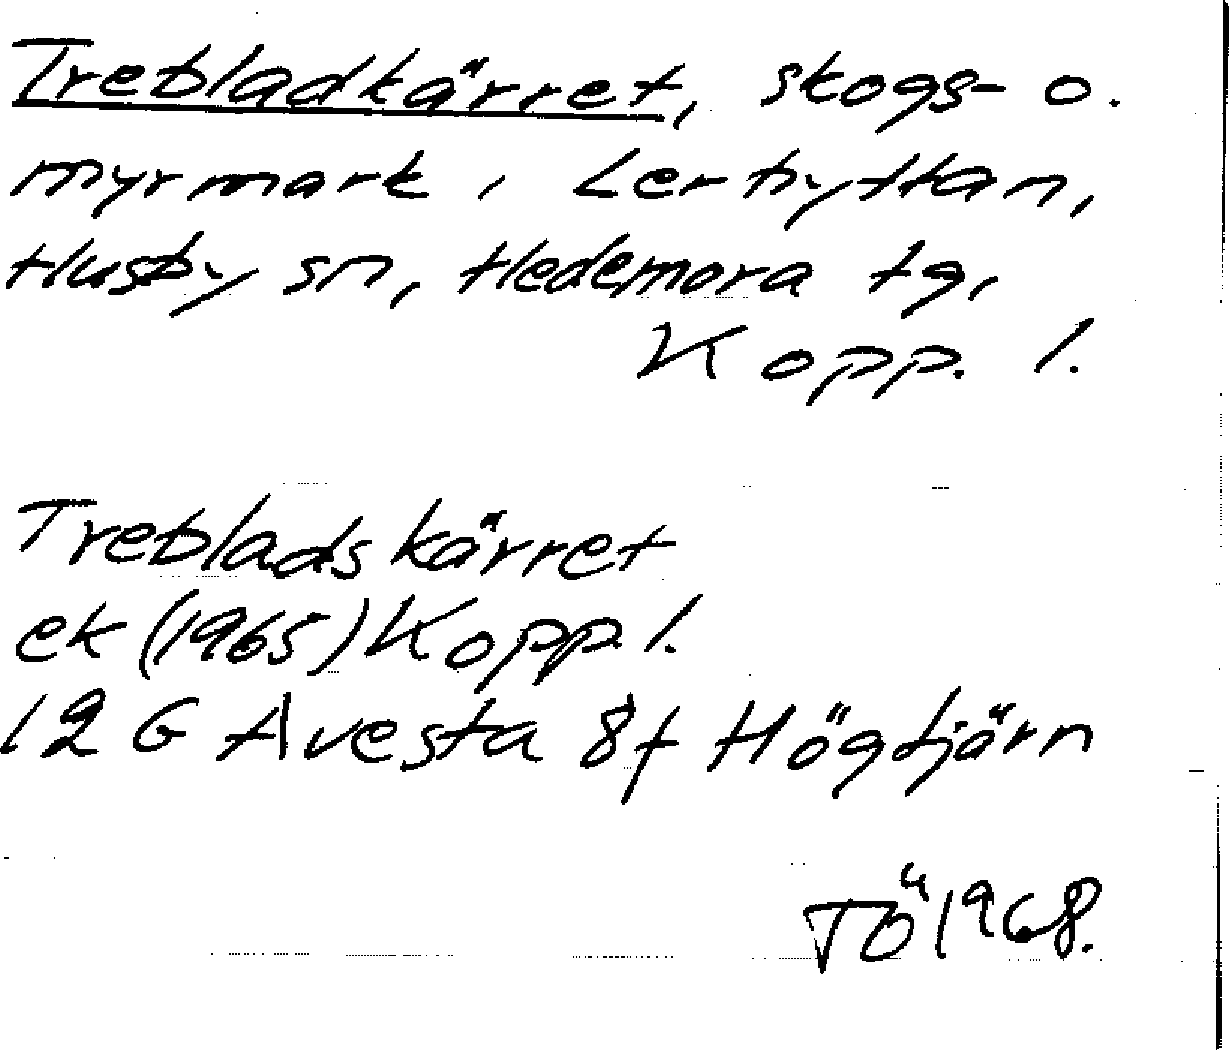 Trebladkärret, skogs- o.
myrmark, Lerhyttan,
Husby sn, Hedemora tg,
Kopp. l.
Trebladskärret
ek (1965) Kopp l.
12 G Avesta 8f Högtjärn
TÖ 1968.